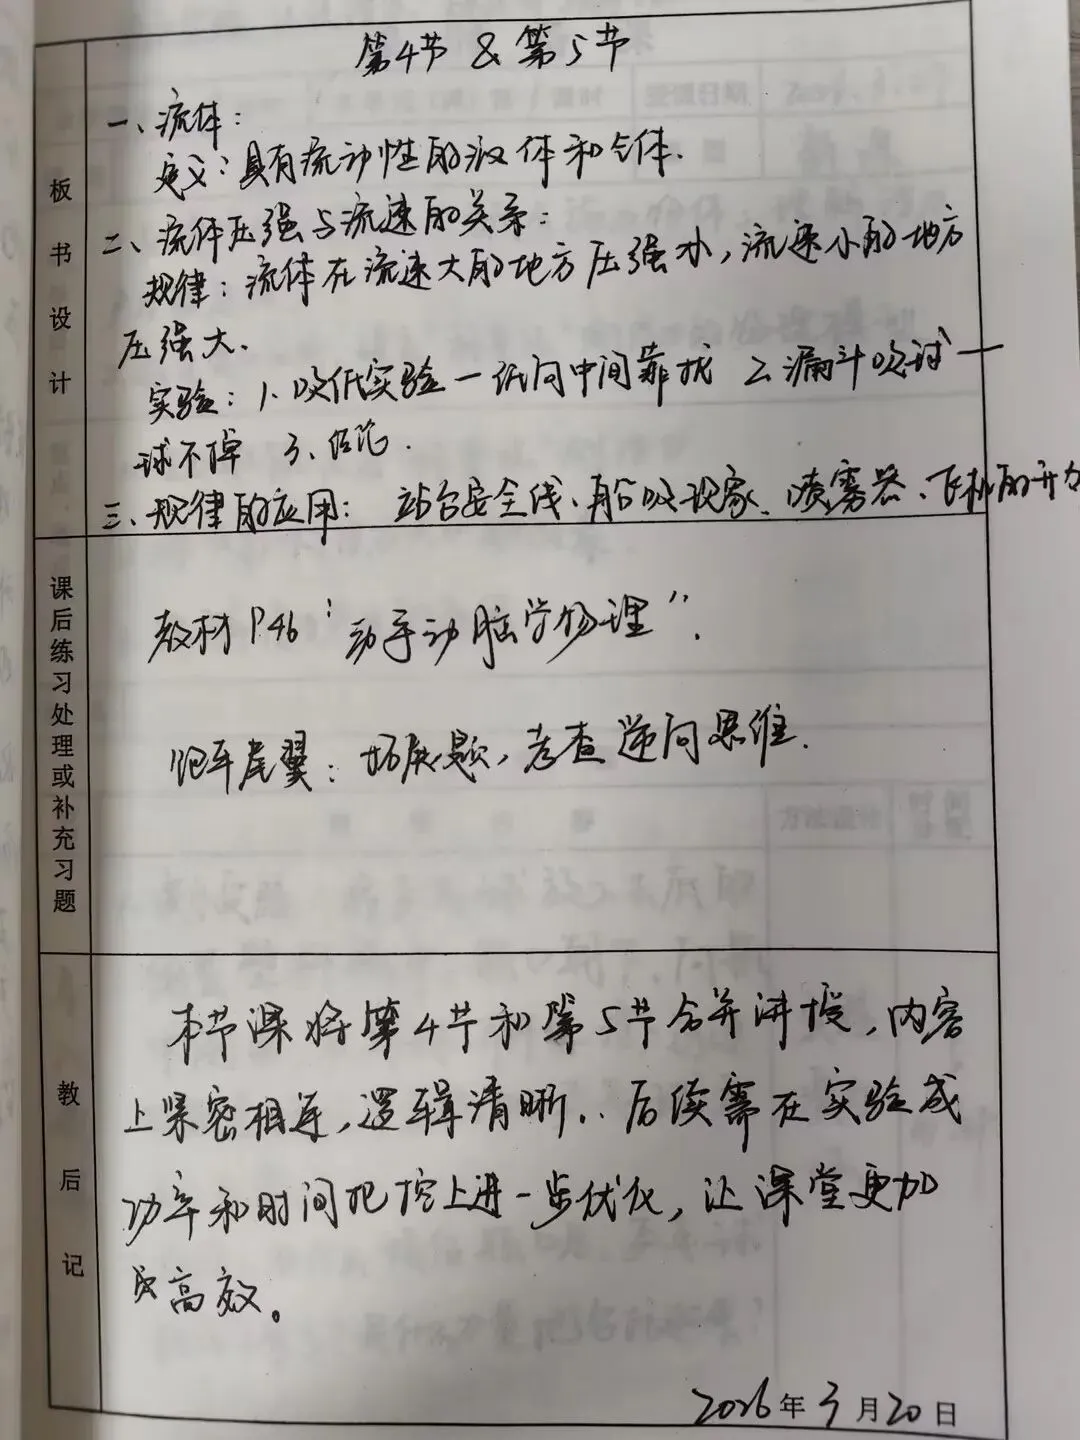 第4节 & 第5节
板书设计
一、流体：
定义：具有流动性的液体和气体.
二、流体压强与流速的关系：
规律：流体在流速大的地方压强小，流速小的地方
压强大.
实验：1.吹纸实验—纸向中间靠拢 2.漏斗吹球—
球不掉 3、结论.
三、规律的应用：站台安全线、船吸现象、喷雾器、飞机的升力
课后练习处理或补充习题
教材P46“动手动脑学物理”.
跑车尾翼：拓展题，考查逆向思维.
教后记
本节课将第4节和第5节合并讲授，内容
上紧密相连，逻辑清晰.. 后续需在实验成
功率和时间把控上进一步优化，让课堂更加
高效。
2026年3月20日